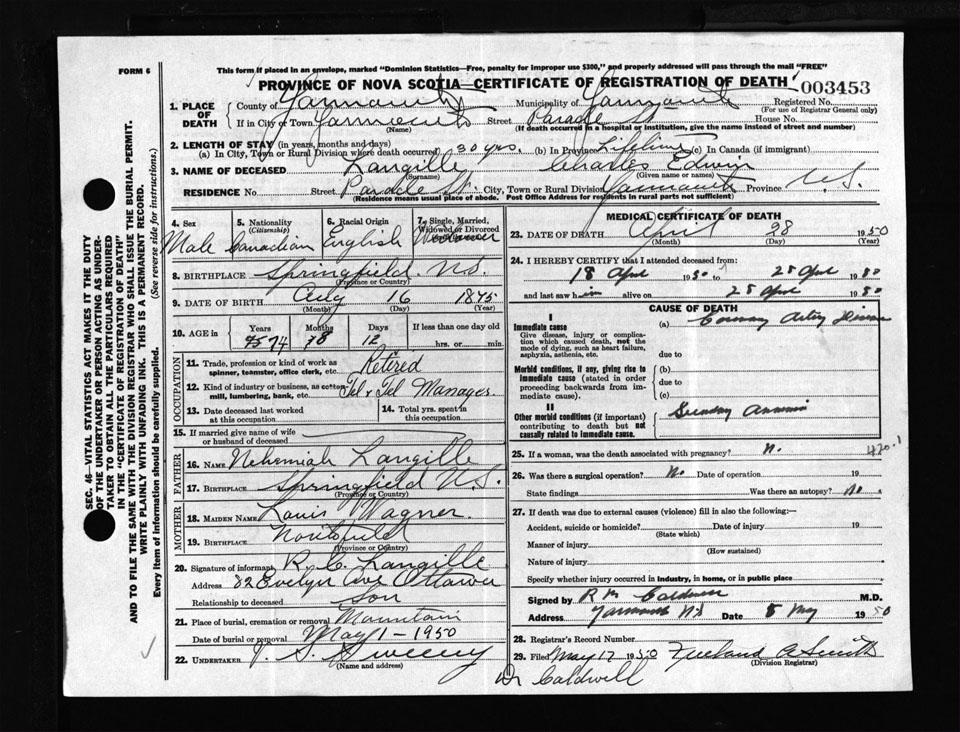 FORM 6
This form if placed in an envelope, marked "Dominion Statistics—Free, penalty for improper use $300," and properly addressed will pass through the mail "FREE"
PROVINCE OF NOVA SCOTIA—CERTIFICATE OF REGISTRATION OF DEATH
003453
1. PLACE OF DEATH
County of Yarmouth Municipality of Yarmouth Registered No.
(For use of Registrar General only)
If in City or Town Yarmouth Street Parade St House No.
(Name) (If death occurred in a hospital or institution, give the name instead of street and number)
2. LENGTH OF STAY (in years, months and days)
(a) In City, Town or Rural Division where death occurred 30 yrs. (b) In Province Lifetime (c) In Canada (if immigrant)
3. NAME OF DECEASED Langille Charles Edwin
(Surname) (Given name or names)
RESIDENCE No. Street Parade St. City, Town or Rural Division Yarmouth Province N.S.
(Residence means usual place of abode. Post Office Address for residents in rural parts not sufficient)
4. Sex 5. Nationality 6. Racial Origin 7. Single, Married, Widowed or Divorced
(Citizenship)
Male Canadian English Widower
8. BIRTHPLACE Springfield N.S.
(Province or Country)
9. DATE OF BIRTH Aug 16 1875
(Month) (Day) (Year)
10. AGE in Years Months Days If less than one day old
74 8 12 hrs. or min.
OCCUPATION
11. Trade, profession or kind of work as spinner, teamster, office clerk, etc. Retired
12. Kind of industry or business, as cotton mill, lumbering, bank, etc. Tel & Tel Manager.
13. Date deceased last worked at this occupation
14. Total yrs. spent in this occupation
15. If married give name of wife or husband of deceased
FATHER
16. NAME Nehemiah Langille
17. BIRTHPLACE Springfield N.S.
(Province or Country)
MOTHER
18. MAIDEN NAME Louis Wagner.
19. BIRTHPLACE Northfield
(Province or Country)
20. Signature of informant R. C. Langille
Address 82 Evelyn Ave Ottawa
Relationship to deceased son
21. Place of burial, cremation or removal Mountain
Date of burial or removal May 1 - 1950
22. UNDERTAKER V. S. Sweeny
(Name and address)
MEDICAL CERTIFICATE OF DEATH
23. DATE OF DEATH April 28 1950
(Month) (Day) (Year)
24. I HEREBY CERTIFY that I attended deceased from:
18 April 1950 to 28 April 1950
and last saw him alive on 28 April 1950
CAUSE OF DEATH
I
Immediate cause
Give disease, injury or complication which caused death, not the mode of dying, such as heart failure, asphyxia, asthenia, etc.
(a) Coronary Artery Disease
due to
Morbid conditions, if any, giving rise to immediate cause (stated in order proceeding backwards from immediate cause).
(b)
due to
(c)
II
Other morbid conditions (if important) contributing to death but not causally related to immediate cause.
Secondary Anaemia
25. If a woman, was the death associated with pregnancy? N.
420.1
26. Was there a surgical operation? No Date of operation 19
State findings Was there an autopsy? No
27. If death was due to external causes (violence) fill in also the following:—
Accident, suicide or homicide? Date of injury 19
(State which)
Manner of injury
(How sustained)
Nature of injury
Specify whether injury occurred in industry, in home, or in public place
Signed by R M Caldwell M.D.
Address Yarmouth NS Date 8 May 1950
28. Registrar's Record Number
29. Filed May 17 1950 A Smith
(Division Registrar)
Dr Caldwell
SEC. 46—VITAL STATISTICS ACT MAKES IT THE DUTY
OF THE UNDERTAKER OR PERSON ACTING AS UNDER-
TAKER TO OBTAIN ALL THE PARTICULARS REQUIRED
IN THE "CERTIFICATE OF REGISTRATION OF DEATH"
AND TO FILE THE SAME WITH THE DIVISION REGISTRAR WHO SHALL ISSUE THE BURIAL PERMIT.
WRITE PLAINLY WITH UNFADING INK. THIS IS A PERMANENT RECORD.
Every item of information should be carefully supplied. (See reverse side for instructions.)